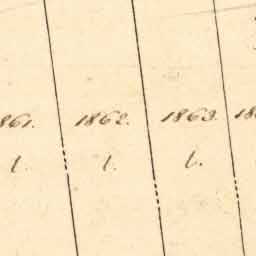 861. 1862. 1863. 18
1. 1. 1.